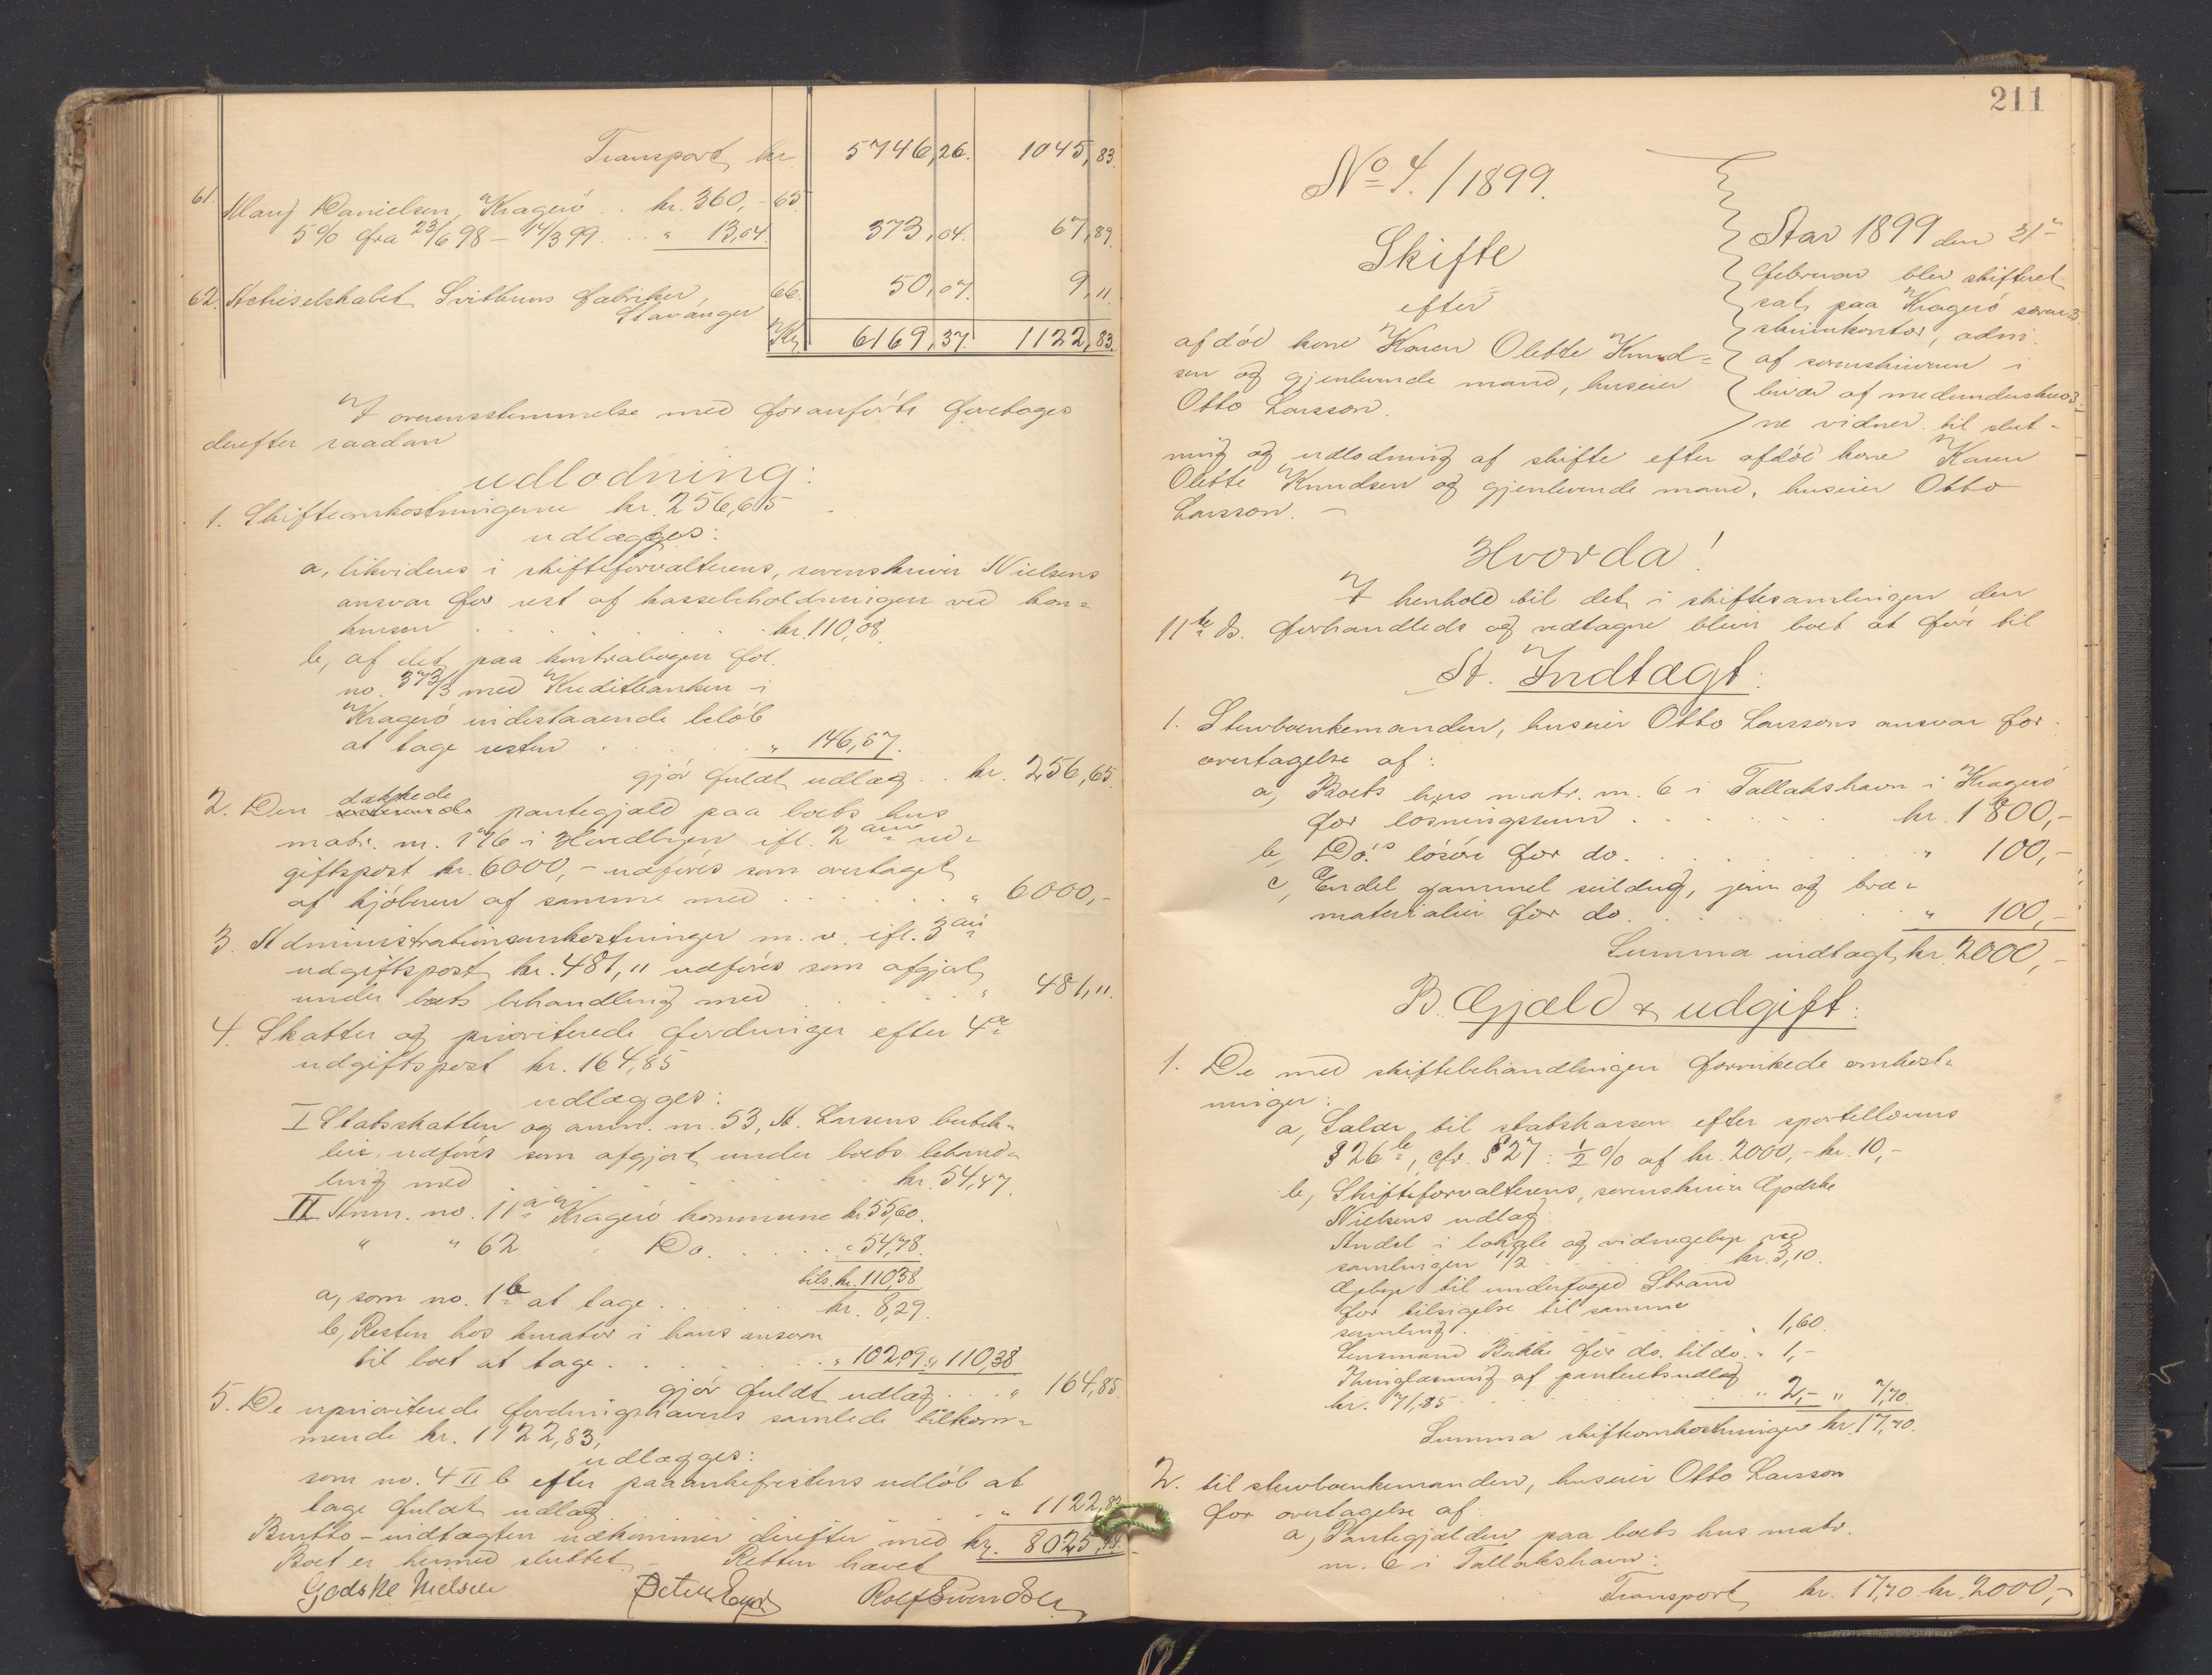 Transport kr. 5746,26. 1045,83.
61. Mary Danielsen, Kragerö . . kr. 360,- 65.
5% fra 23/6 98 – 14/3 99 . . . " 13,04. 373,04. 67,89
62. Actieselskabet Svithuns fabriker, Stavanger 66. 50,07. 9,11.
Kr. 6169,37. 1122,83.
I overensstemmelse med foranförte foretages
derefter saadan
udlodning:
1. Skifteomkostningerne kr. 256,65
udlægges:
a, likvideres i skifteforvalterens, sorenskriver Nielsens
ansvar for rest af kassebeholdningen ved kon=
kursen . . . kr. 110,08.
b, af det paa kontrabogen fol.
no. 373/3 med Kreditbanken i
Kragerö indestaaende belöb
at tage resten . . . " 146,57.
gjör fuldt udlæg . . kr. 256,65.
2. Den dækkede pantegjæld paa boets hus
matr. nr. 176 i Hovedbyen ifl. 2den ud=
giftspost kr. 6000,- udföres som overtaget
af kjöberen af samme med . . . " 6000,-
3. Administrationsomkostninger m. v. ifl. 3die
udgiftspost kr. 481,11 udföres som afgjort
under boets behandling med . . . " 481,11.
4. Skatter og prioriterede fordringer efter 4de
udgiftspost kr. 164,85
udlægges:
I Statsskatten og anm. nr. 53, A. Larsens
udföres som afgjort under boets behand=
ling med . . . kr. 54,47.
II Anm. no. 11a Kragerö kommune kr. 55,60.
" " 62 Do. . . . " 54,78.
tils. kr. 110,38
a, som no. 1b at tage . . . kr. 8,29.
b, Resten hos kurator i hans ansvar
til boet at tage . . . " 102,09 " 110,38
gjör fuldt udlæg . . . " 164,85.
5. De uprioriterede fordringshaveres samlede tilkom=
mende kr. 1122,83,
udlægges:
som no. 4 II b efter paaankefristens udlöb at
tage fuldt udlæg . . . " 1122,83
Brutto-indtægten udkommer derefter med kr. 8025,44.
Boet er hermed sluttet. – Retten hævet
Godske Nielsen Rolf Svendsen
211
No 4./1899.
Skifte
efter
afdöd kone Karen Olette Knud=
sen og gjenlevende mand, huseier
Otto Larsson.
Aar 1899 den 21de
februar blev skifteret
sat paa Kragerö soren=
skriverkontor, adm.
af sorenskriveren i
nævær af medunderskrev=
ne vidner til slut=
ning og udlodning af skifte efter afdöd kone Karen
Olette Knudsen og gjenlevende mand, huseier Otto
Larsson. –
Hvorda!
I henhold til det i skiftesamlingen den
11te ds. forhandlede og vedtagne bliver boet at före til
A. Indtægt:
1. Stervboenkemanden, huseier Otto Larssons ansvar for
overtagelse af:
a, Boets hus matr. nr. 6 i Tallakshavn i Kragerö
for lösningssum . . . kr. 1800,-
b, Do.s lösöre for do. . . . " 100,-
c, Endel gammel seildug, jern og træ=
materialier for do. . . . " 100,-
Summa indtægt kr. 2000,-
B. Gjæld & udgift:
1. De med skiftebehandlingen forvirkede omkost=
ninger:
a, Salær til statskassen efter sportellovens
§ 26 b, cfr. § 27: ½ % af kr. 2000,- kr. 10,-
b, Skifteforvalterens, sorenskriver Godske
Nielsens udlæg:
Andel i lokale og vidnegebyr ved
samlingen 11/2 . . . kr. 3,10.
Gebyr til underfoged Strand
for tilsigelse til samme
samling . . . " 1,60.
Lensmand Bakke for do. til do. " 1,-
Thinglæsning af panteretsudlæg
kr. 71,85 . . . " 2,- " 7,70.
Summa skifteomkostninger kr. 17,70.
2. til stervboenkemanden, huseier Otto Larsson
for overtagelse af:
a, Pantegjælden paa boets hus matr.
nr. 6 i Tallakshavn:
Transport kr. 17,70 kr. 2000,-